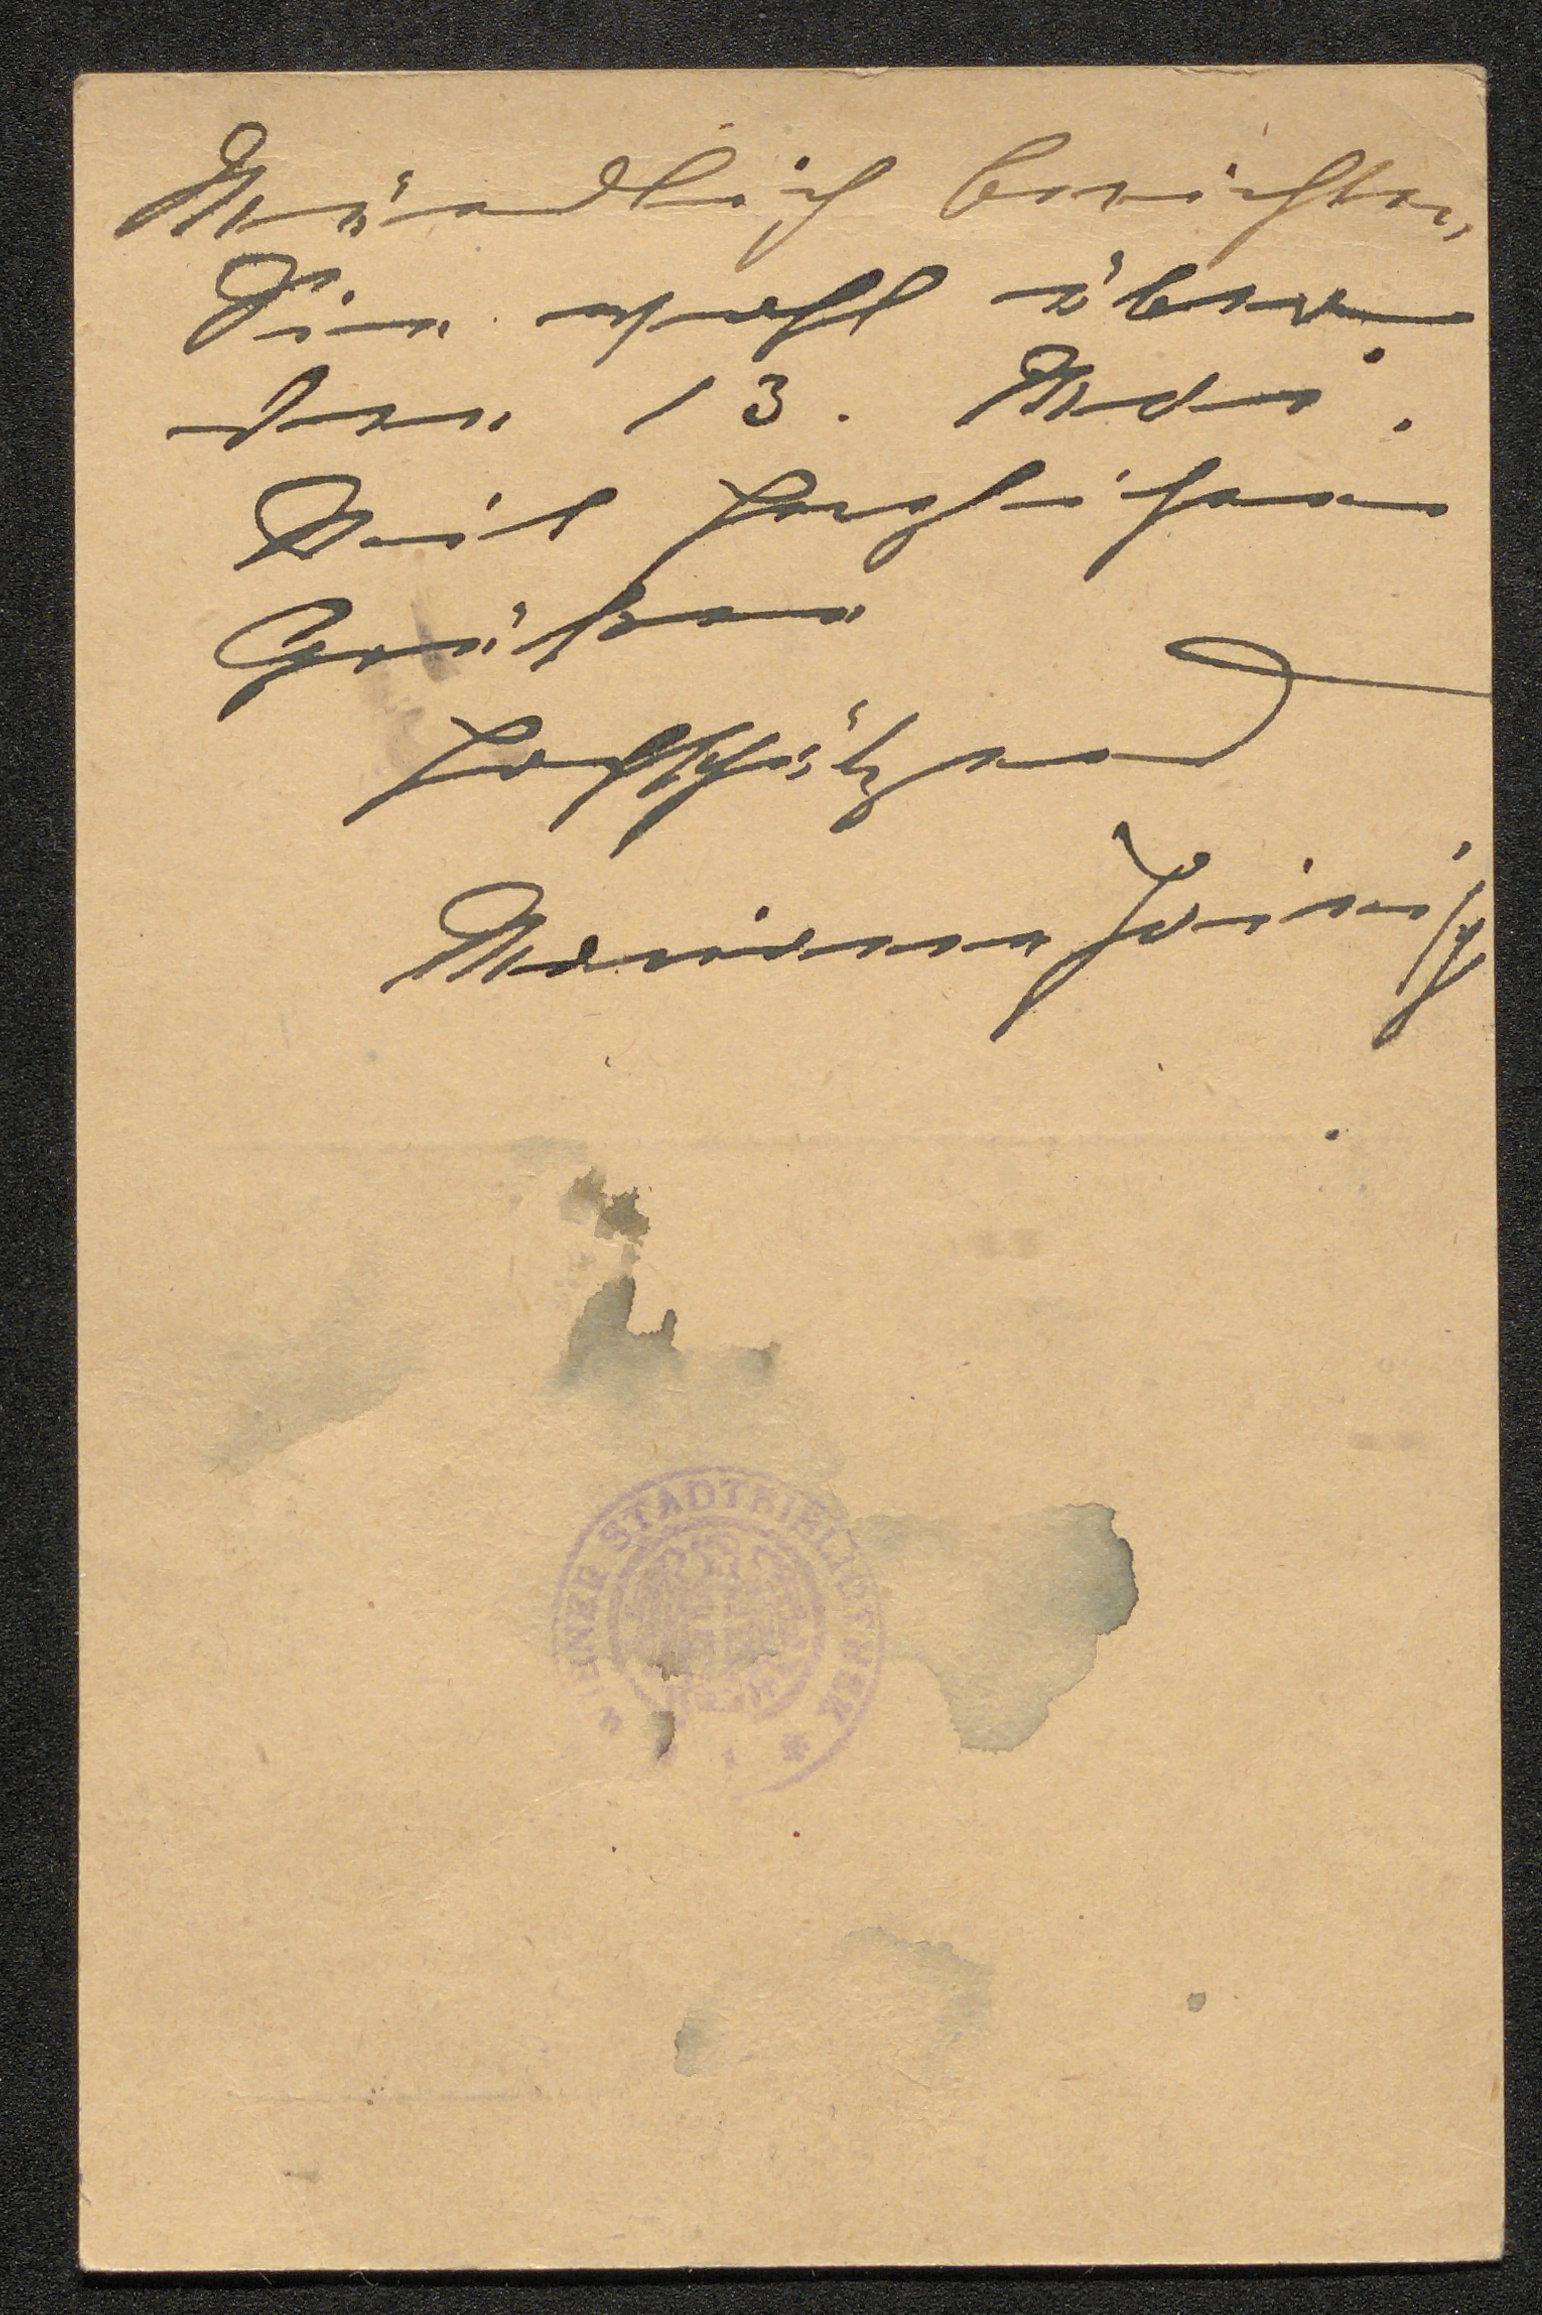 Mündlich berichten
Sie wohl über
den 13. Mai.
Mit herzlichen
Grüßen
hochschätzend
Marianne Hainisch
WIENER STADTBIBLIOTHEK